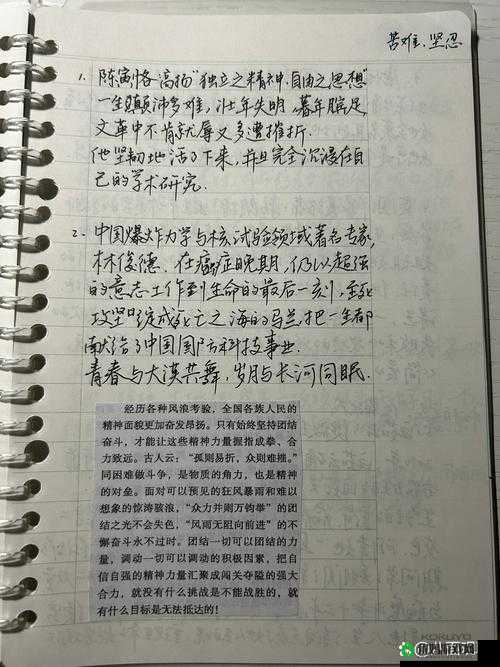 苦难、坚忍
1. 陈寅恪高扬“独立之精神,自由之思想”
一生颠沛多难,壮年失明,暮年膑足
文革中不肯就辱又多遭摧折.
他坚韧地活了下来,并且完全沉浸在自
己的学术研究.
2. 中国爆炸力学与核试验领域著名专家,
林俊德.在癌症晚期,仍以超强
的意志工作到生命的最后一刻.
攻坚 绽成死亡之海的马兰,把一生都
献给了中国国防科技事业.
青春与大漠共舞,岁月与长河同眠.
经历各种风浪考验,全国各族人民的
精神面貌更加奋发昂扬。只有始终坚持团结
奋斗,才能让这些精神力量握指成拳、合
力致远。古人云:“孤则易折,众则难摧。”
同困难做斗争,是物质的角力,也是精神
的对垒。面对可以预见的狂风暴雨和难以
想象的惊涛骇浪,“众力并则万钧举”的团
结之光不会失色,“风雨无阻向前进”的不
懈奋斗永不过时。团结一切可以团结的力
量,调动一切可以调动的积极因素,把自
信自强的精神力量汇聚成闯关夺隘的强大
合力,就没有什么挑战是不能战胜的,就
有什么目标是无法抵达的!
KOKUYO